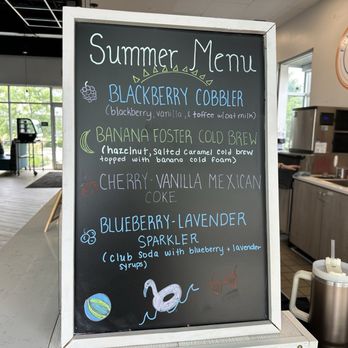 Summer Menu
BLACKBERRY COBBLER
(blackberry, vanilla, & toffee w/oat milk)
BANANA FOSTER COLD BREW
(hazelnut, salted caramel cold brew
topped with banana cold foam)
CHERRY-VANILLA MEXICAN
COKE
BLUEBERRY-LAVENDER
SPARKLER
(club soda with blueberry + lavender
syrups)